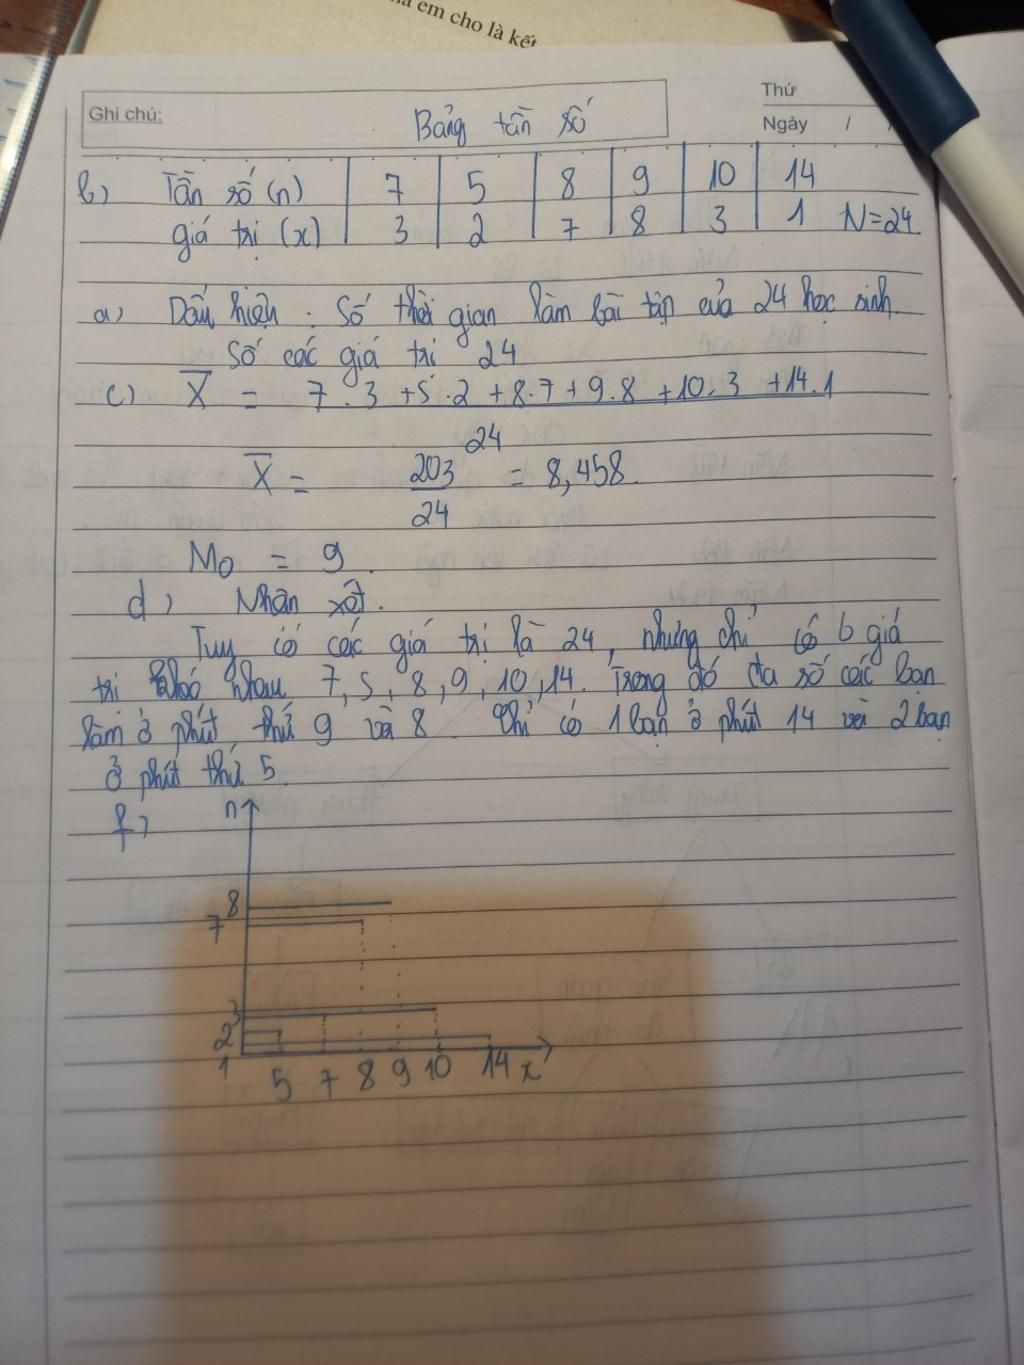 ra em cho là kết
Ghi chú:
Bảng tần số
Thứ
Ngày / /
b) Tần số (n) 7 5 8 9 10 14
giá trị (x) 3 2 7 8 3 1 N=24
a) Dấu hiệu : Số thời gian làm bài tập của 24 học sinh.
Số các giá trị 24
c) X̅ = 7.3 +5.2 +8.7 +9.8 +10.3 +14.1
24
X̅ = 203 = 8,458.
24
Mo = 9.
d) Nhận xét.
Tuy có các giá trị là 24, nhưng chỉ có 6 giá
trị khác nhau 7, 5, 8, 9, 10, 14. Trong đó đa số các bạn
làm ở phút thứ 9 và 8. Chỉ có 1 bạn ở phút 14 và 2 bạn
ở phút thứ 5.
f) n
8
7
3
2
1
5 7 8 9 10 14 x